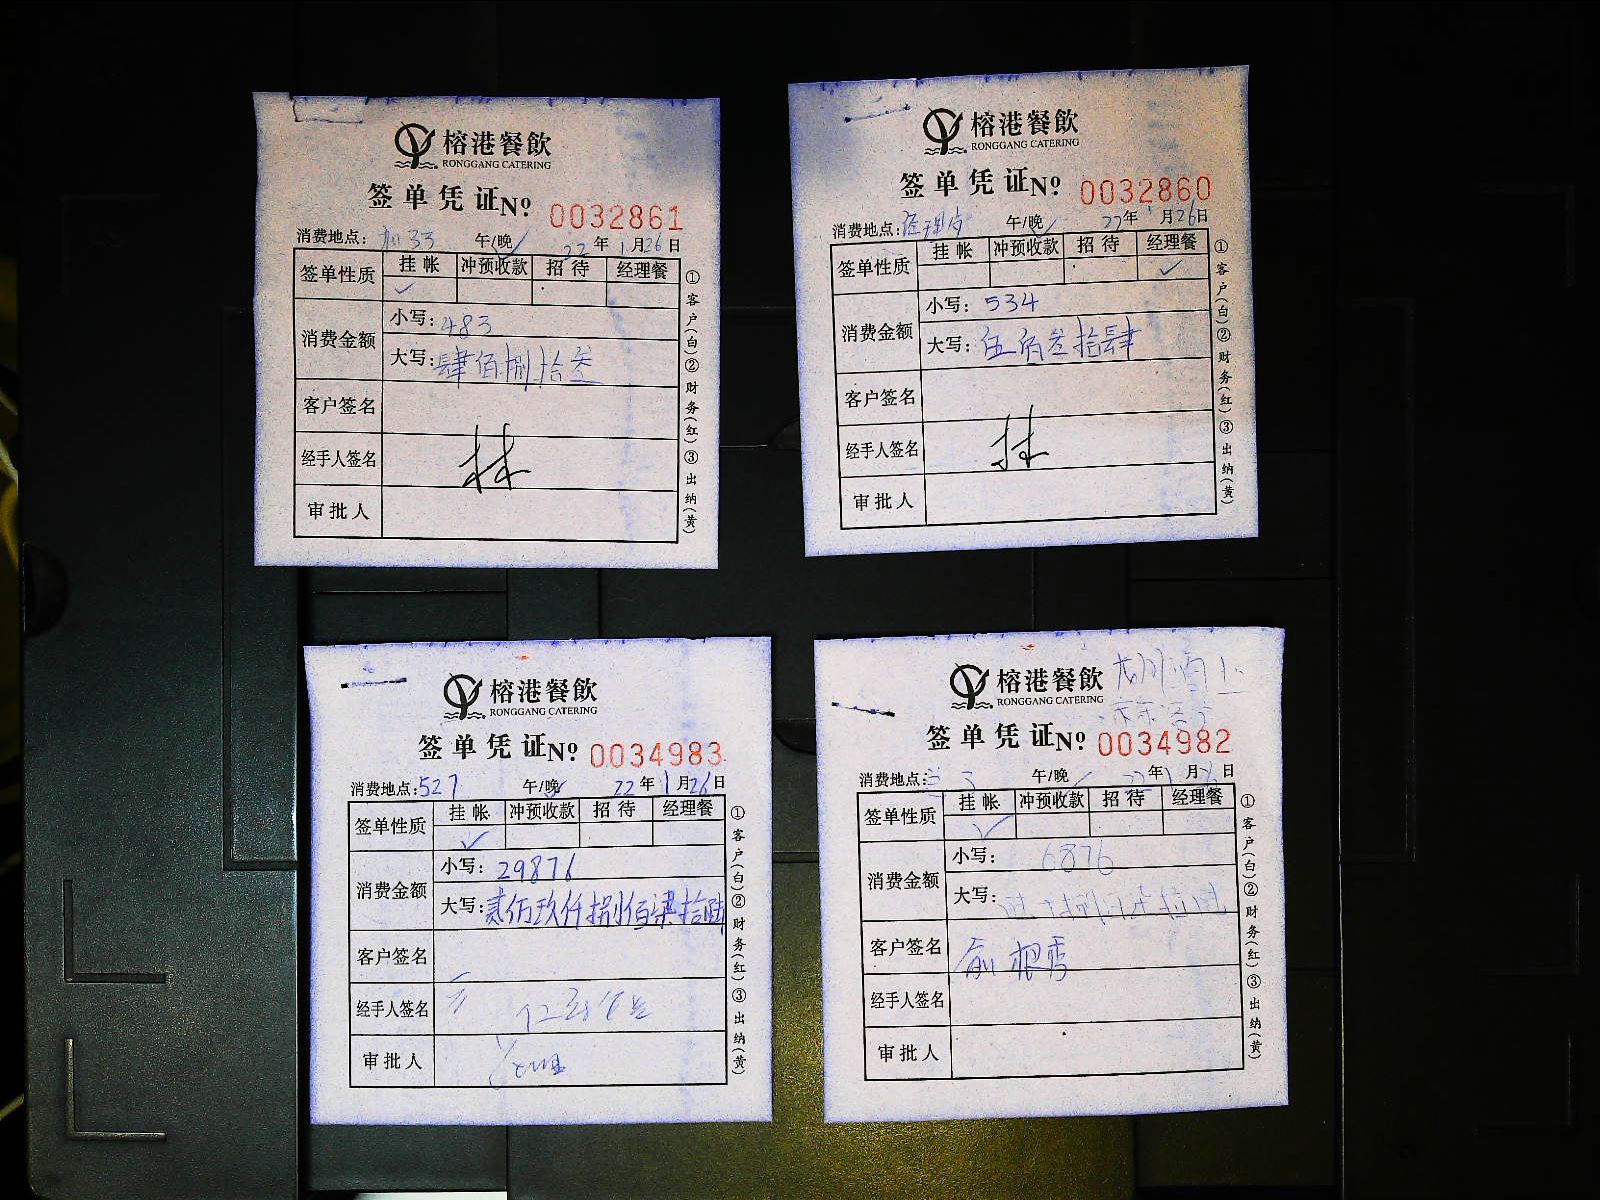 榕港餐飲
RONGGANG CATERING
签单凭证 Nº 0032861
消费地点: 33 午/晚✓ 22年1月26日
签单性质 挂帐 冲预收款 招待 经理餐
✓
消费金额 小写: 483
大写: 肆佰捌拾叁
客户签名
经手人签名 林
审批人
①客户(白)②财务(红)③出纳(黄)
榕港餐飲
RONGGANG CATERING
签单凭证 Nº 0032860
消费地点: 午/晚✓ 22年1月26日
签单性质 挂帐 冲预收款 招待 经理餐
✓
消费金额 小写: 534
大写: 伍佰叁拾肆
客户签名
经手人签名 林
审批人
①客户(白)②财务(红)③出纳(黄)
榕港餐飲
RONGGANG CATERING
签单凭证 Nº 0034983
消费地点: 527 午/晚✓ 22年1月26日
签单性质 挂帐 冲预收款 招待 经理餐
✓
消费金额 小写: 29876
大写: 贰万玖仟捌佰柒拾陆
客户签名
经手人签名
审批人
①客户(白)②财务(红)③出纳(黄)
榕港餐飲
RONGGANG CATERING
签单凭证 Nº 0034982
消费地点: 午/晚✓ 22年1月26日
签单性质 挂帐 冲预收款 招待 经理餐
✓
消费金额 小写: 6876
大写:
客户签名
经手人签名
审批人
①客户(白)②财务(红)③出纳(黄)